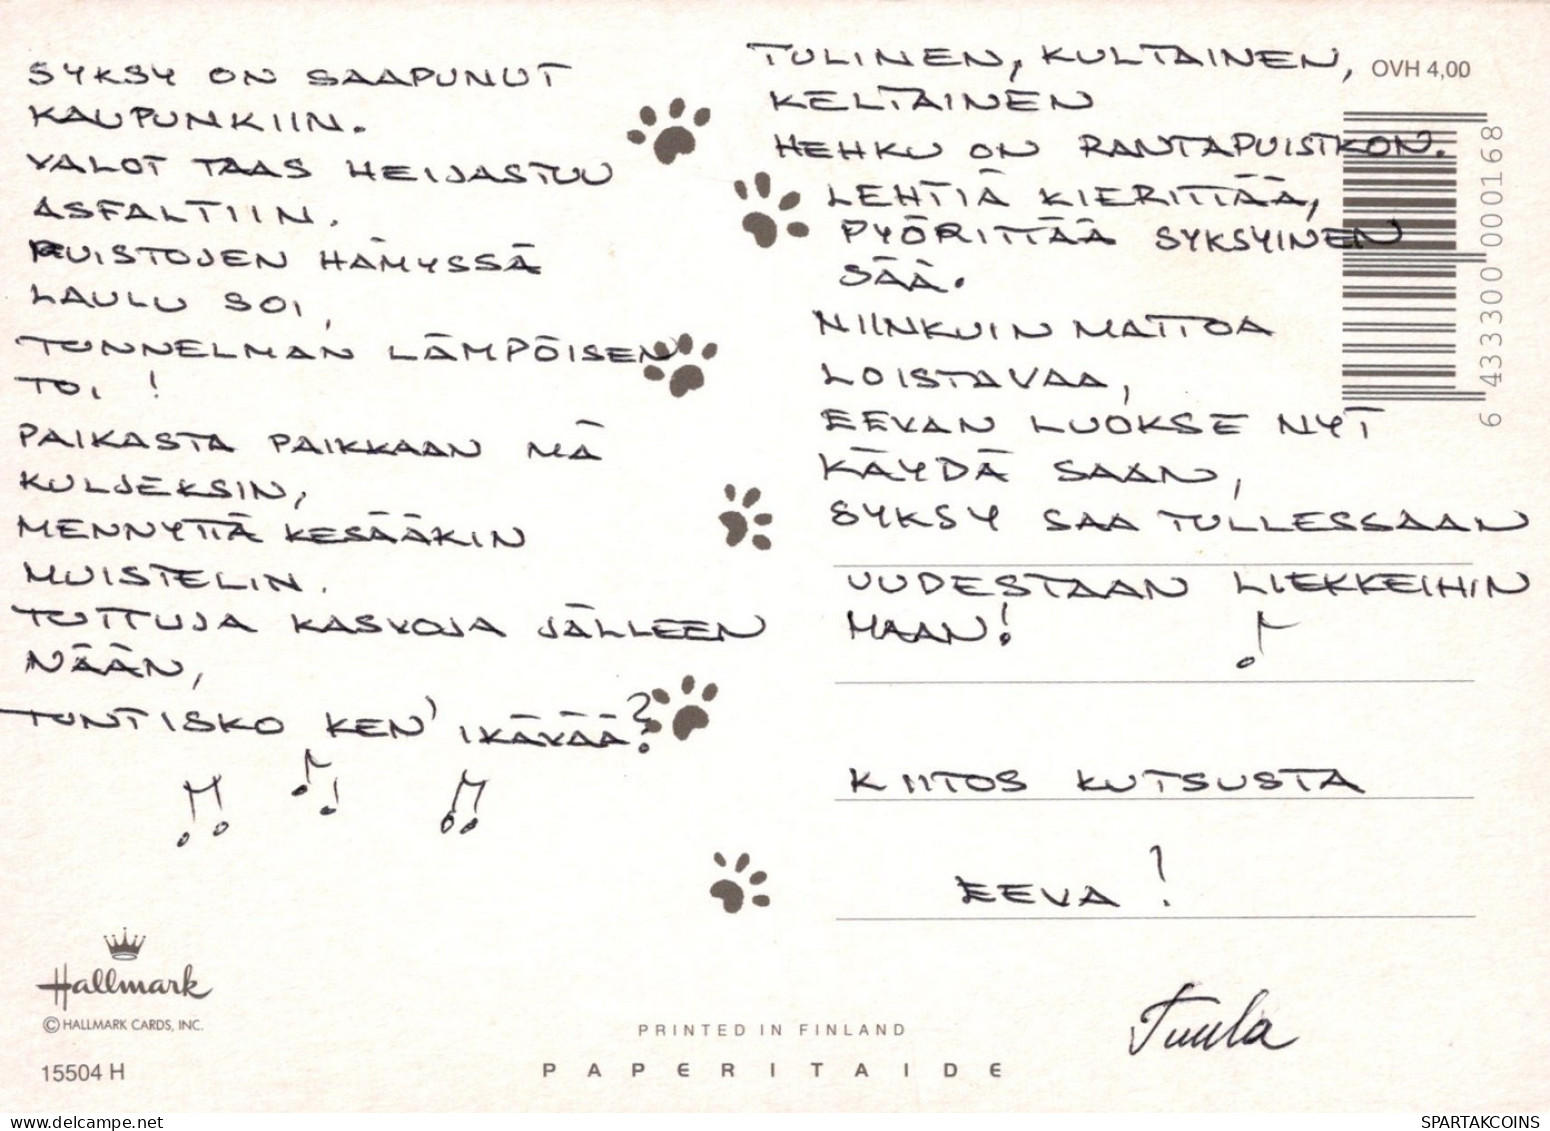 SYKSY ON SAAPUNUT
KAUPUNKIIN.
VALOT TAAS HEIJASTUU
ASFALTIIN.
PUISTOJEN HÄMYSSÄ
LAULU SOI,
TUNNELMAN LÄMPÖISEN
TOI!
PAIKASTA PAIKKAAN MÄ
KULJEKSIN,
MENNYTTÄ KESÄÄKIN
MUISTELIN.
TUTTUJA KASVOJA JÄLLEEN
NÄÄN,
TUNTISKO KEN' IKÄVÄÄ?
TULINEN, KULTAINEN,
KELTAINEN
HEHKU ON RANTAPUISTKON.
LEHTIÄ KIERITTÄÄ,
PYÖRITTÄÄ SYKSYINEN
SÄÄ.
NIINKUIN MATTOA
LOISTAVAA,
EEVAN LUOKSE NYT
KÄYDÄ SAAN,
SYKSY SAA TULLESSAAN
UUDESTAAN LIEKKEIHIN
MAAN!
KIITOS KUTSUSTA
EEVA!
Tuula
OVH 4,00
6 433300 000168
Hallmark
© HALLMARK CARDS, INC.
15504 H
PRINTED IN FINLAND
PAPERITAIDE
SPARTAKCOINS